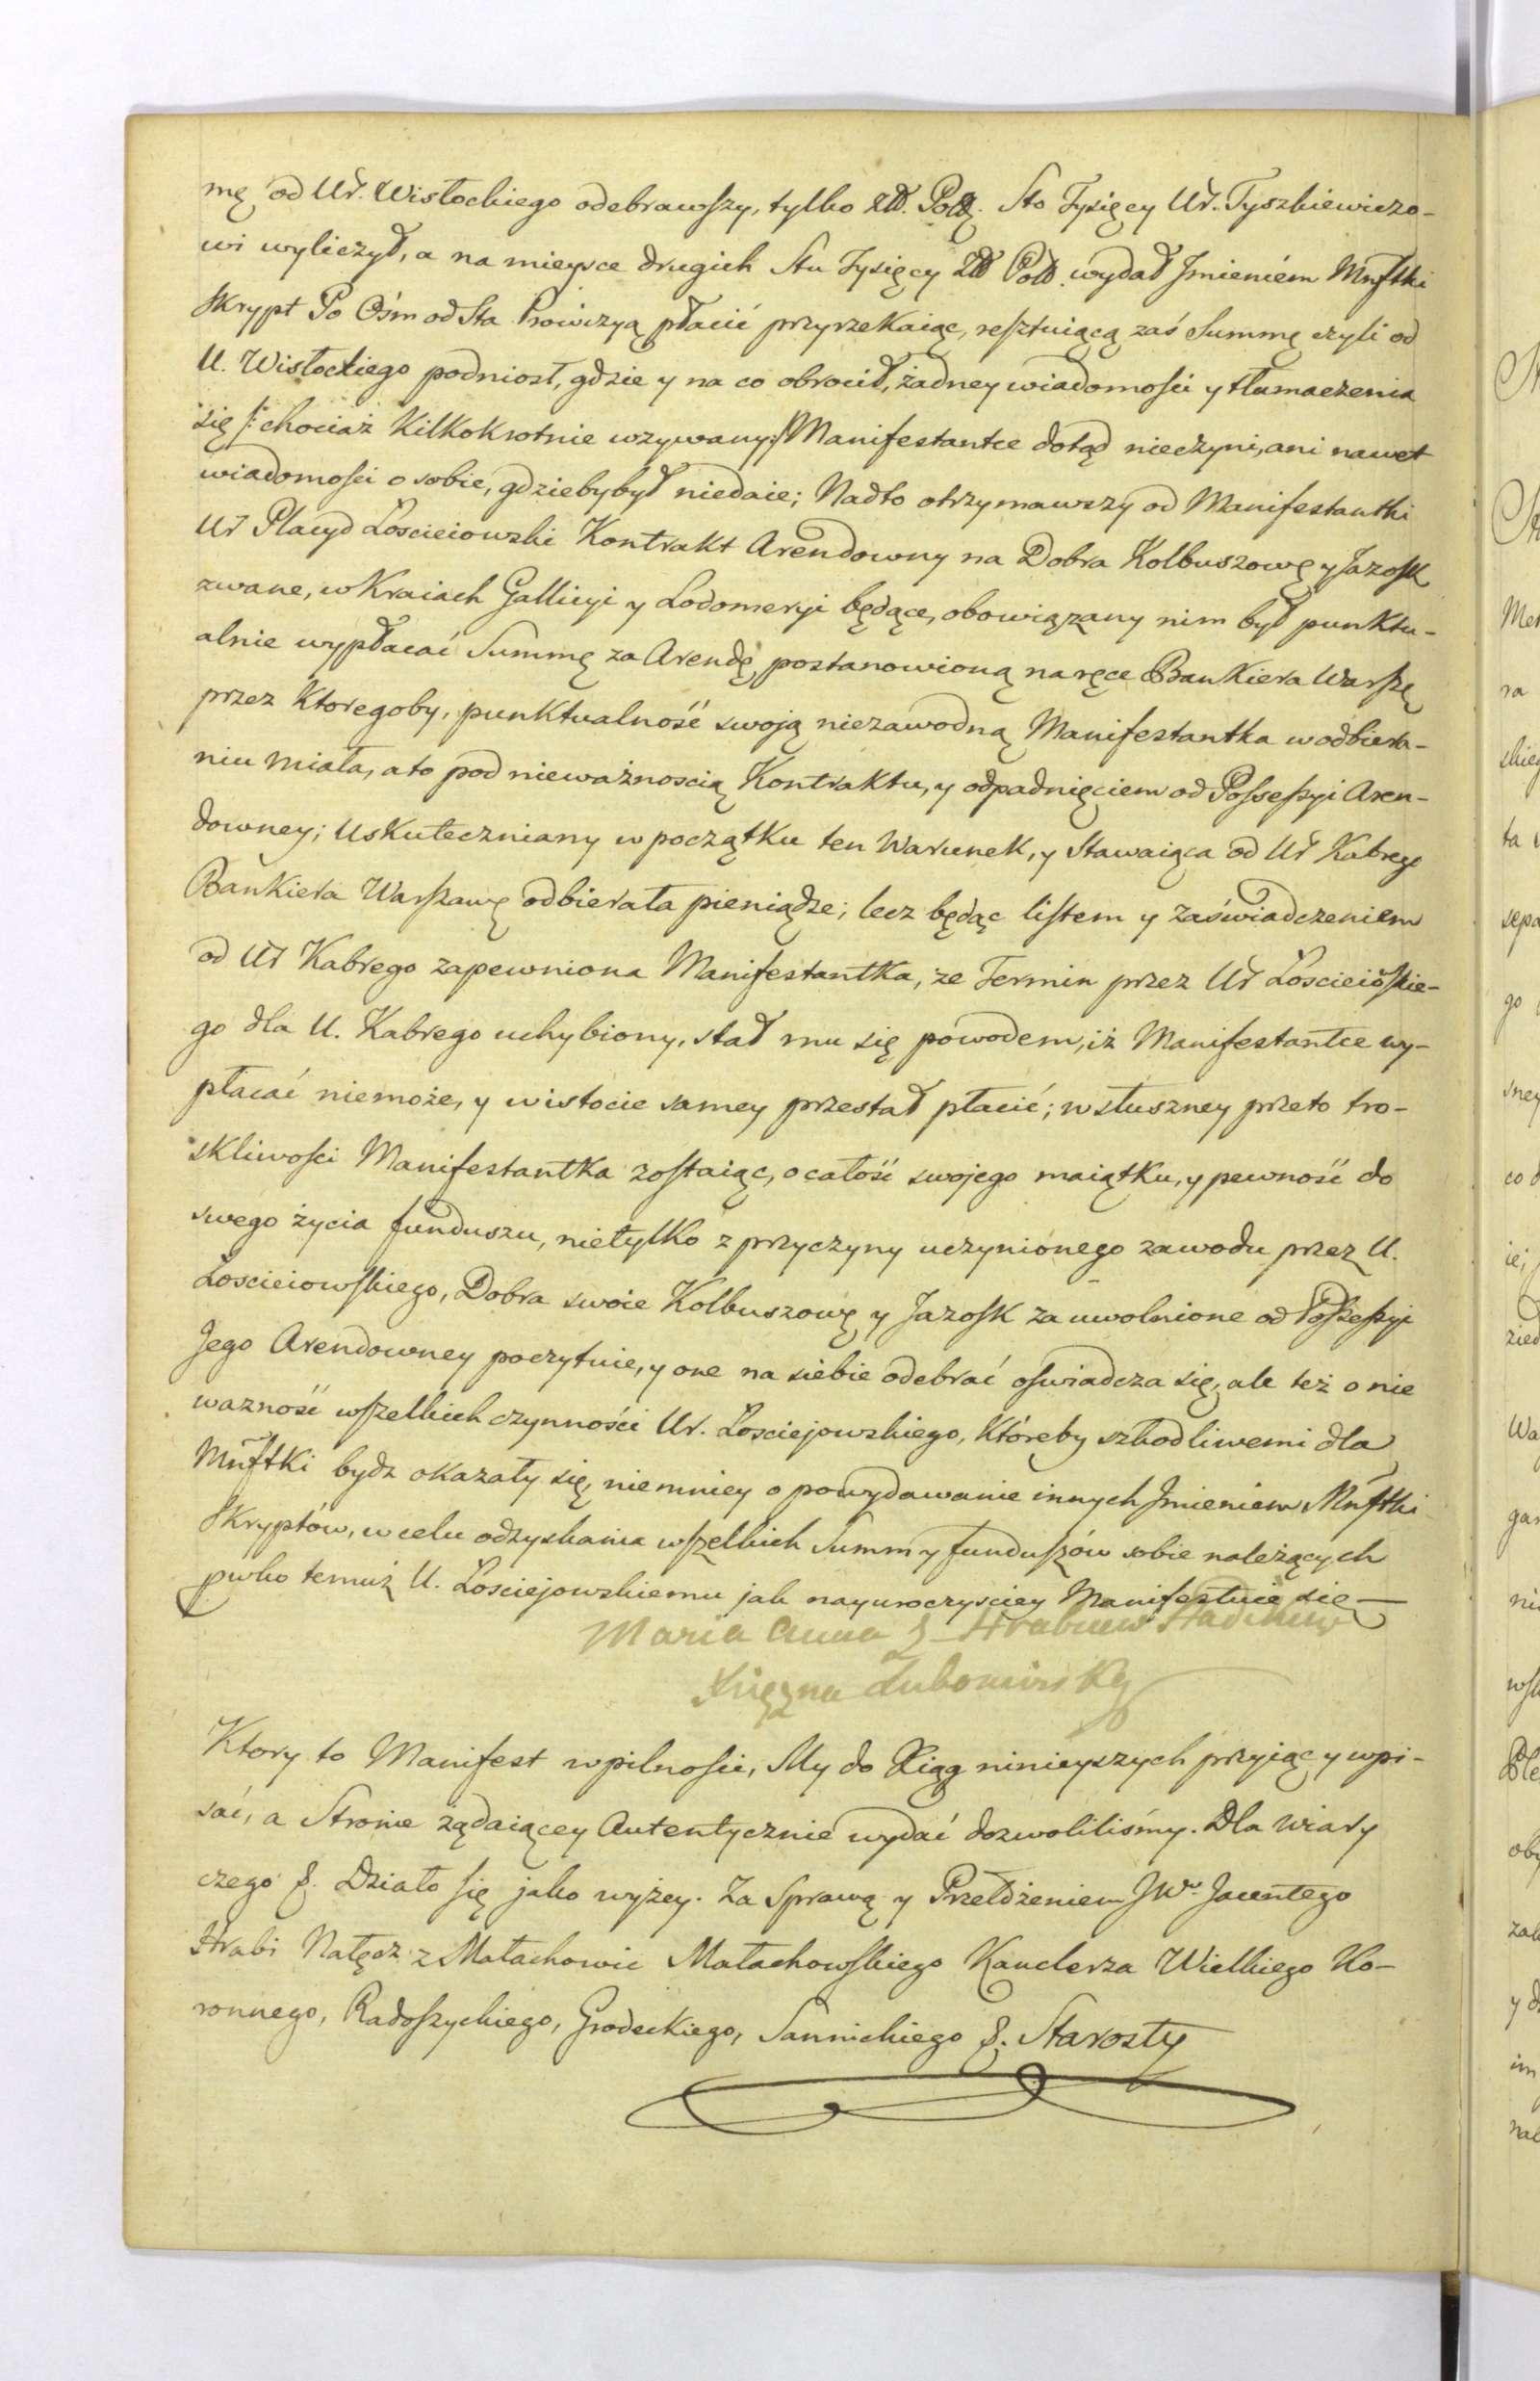 mę od Ur. Wisłockiego odebrawszy, tylko Złł. Polł. Sto Tysięcy Ur. Tyszkiewiczo-
wi wyliczył, a na mieysce drugich Stu Tysięcy Złł Polł. wydał Jmieniem Mnftki
Skrypt Po Ośm od Sta Prowizyą płacić przyrzekaiąc, resztuiącą zaś Summę czyli od
U. Wisłockiego podniosł, gdzie y na co obrocił, żadney wiadomości y tłamaczenia
się /: chociaż kilkokrotnie wzywany :/ Manifestantce dotąd nieczyni, ani nawet
wiadomości o sobie, gdzieby był niedaie; Nadto otrzymawszy od Manifestantki
Ur Placyd Łoscieiowski Kontrakt Arendowny na Dobra Kolbuszowę y Jazosk
zwane, w Kraiach Gallicyi y Lodomeryi będące, obowiązany nim był punktu-
alnie wypłacać Summę za Arendę, postanowioną na ręce Bankiera Warszę
przez ktoregoby, punktualność swoją niezawodną Manifestantka w odbiera-
niu miała, a to pod nieważnoscią Kontraktu, y odpadnięciem od Possessyi Aren-
downey; Uskuteczniany w początku ten Warunek, y Stawaiąca od Ur Kabrego
Bankiera Warszawę odbierała pieniądze; lecz będąc listem y zaświadczeniem
od Ur Kabrego zapewniona Manifestantka, że Termin przez Ur Łoscieioskie-
go dla U. Kabrego uchybiony, stał mu się powodem, iż Manifestantce wy-
płacać niemoże, y w istocie samey przestał płacić; w słuszney przeto tro-
skliwości Manifestantka zostaiąc, o całość swojego maiątku, y pewność do
swego życia funduszu, nietylko z przyczyny uczynionego zawodu przez U.
Łoscieiowskiego, Dobra swoie Kolbuszowę y Jazosk za uwolnione od Possessyi
Jego Arendowney poczytuie, y one na siebie odebrać oswiadcza się, ale też o nie
ważność wszelkich czynności Ur. Łosciejowskiego, któreby szkodliwemi dla
Mnftki bydz okazały się, niemniey o powydawanie innych Jmieniem Mnftki
Skryptów, w celu odzyskania wszelkich Summ y funduszów sobie należących
pwko temuż U. Łosciejowskiemu jak nayuroczysciey Manifestuie się
Maria Anna z Hrabiow Hadikow
Xsięzna Lubomirska
Ktory to Manifest w pilnosci, My do Xiąg ninieyszych przyiąć y wpi-
sać, a Stronie żądaiącey Autentycznie wydać dozwolilismy. Dla wiary
czego &. Działo się jako wyżey. Za Sprawą y Przełożeniem JW. Jacentego
Hrabi Nałęcz z Małachowic Małachowskiego Kanclerza Wielkiego Ko-
ronnego, Radoszyckiego, Grodeckiego, Sannickiego &. Starosty